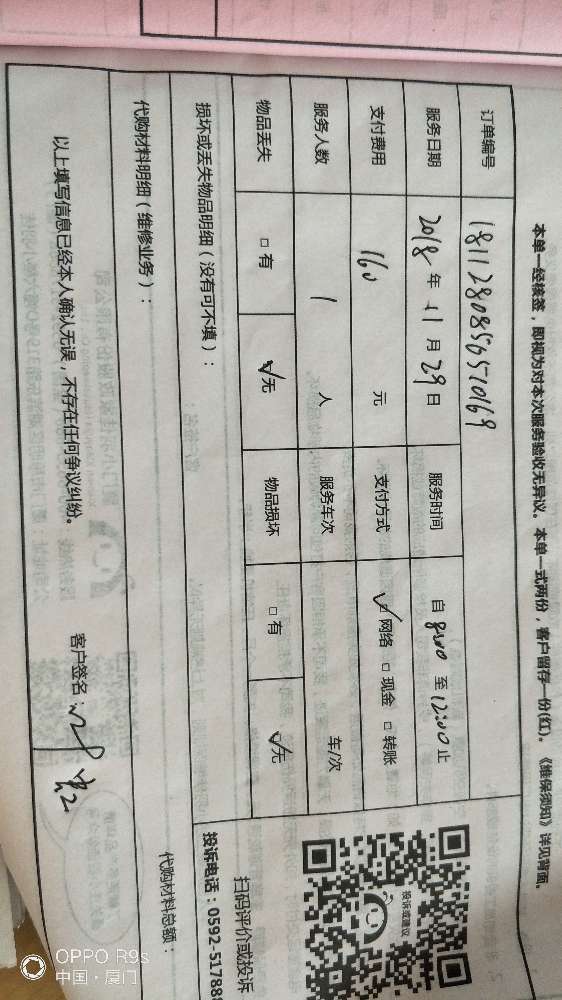 本单一经核签，即视为对本次服务验收无异议。本单一式两份，客户留存一份(红)。《维保须知》详见背面。
订单编号 18112808565710169
服务日期 2018 年 11 月 29 日 服务时间 自 8:00 至 12:00 止
支付费用 160 元 支付方式 ☑网络 □现金 □转账
服务人数 1 人 服务车次 车/次
物品丢失 □有 ☑无 物品损坏 □有 ☑无
损坏或丢失物品明细（没有可不填）：
代购材料明细（维修业务）： 代购材料总额：
以上填写信息已经本人确认无误，不存在任何争议纠纷。 客户签名：
投诉或建议
扫码评价或投诉
投诉电话：0592-51788
OPPO R9s
中国·厦门